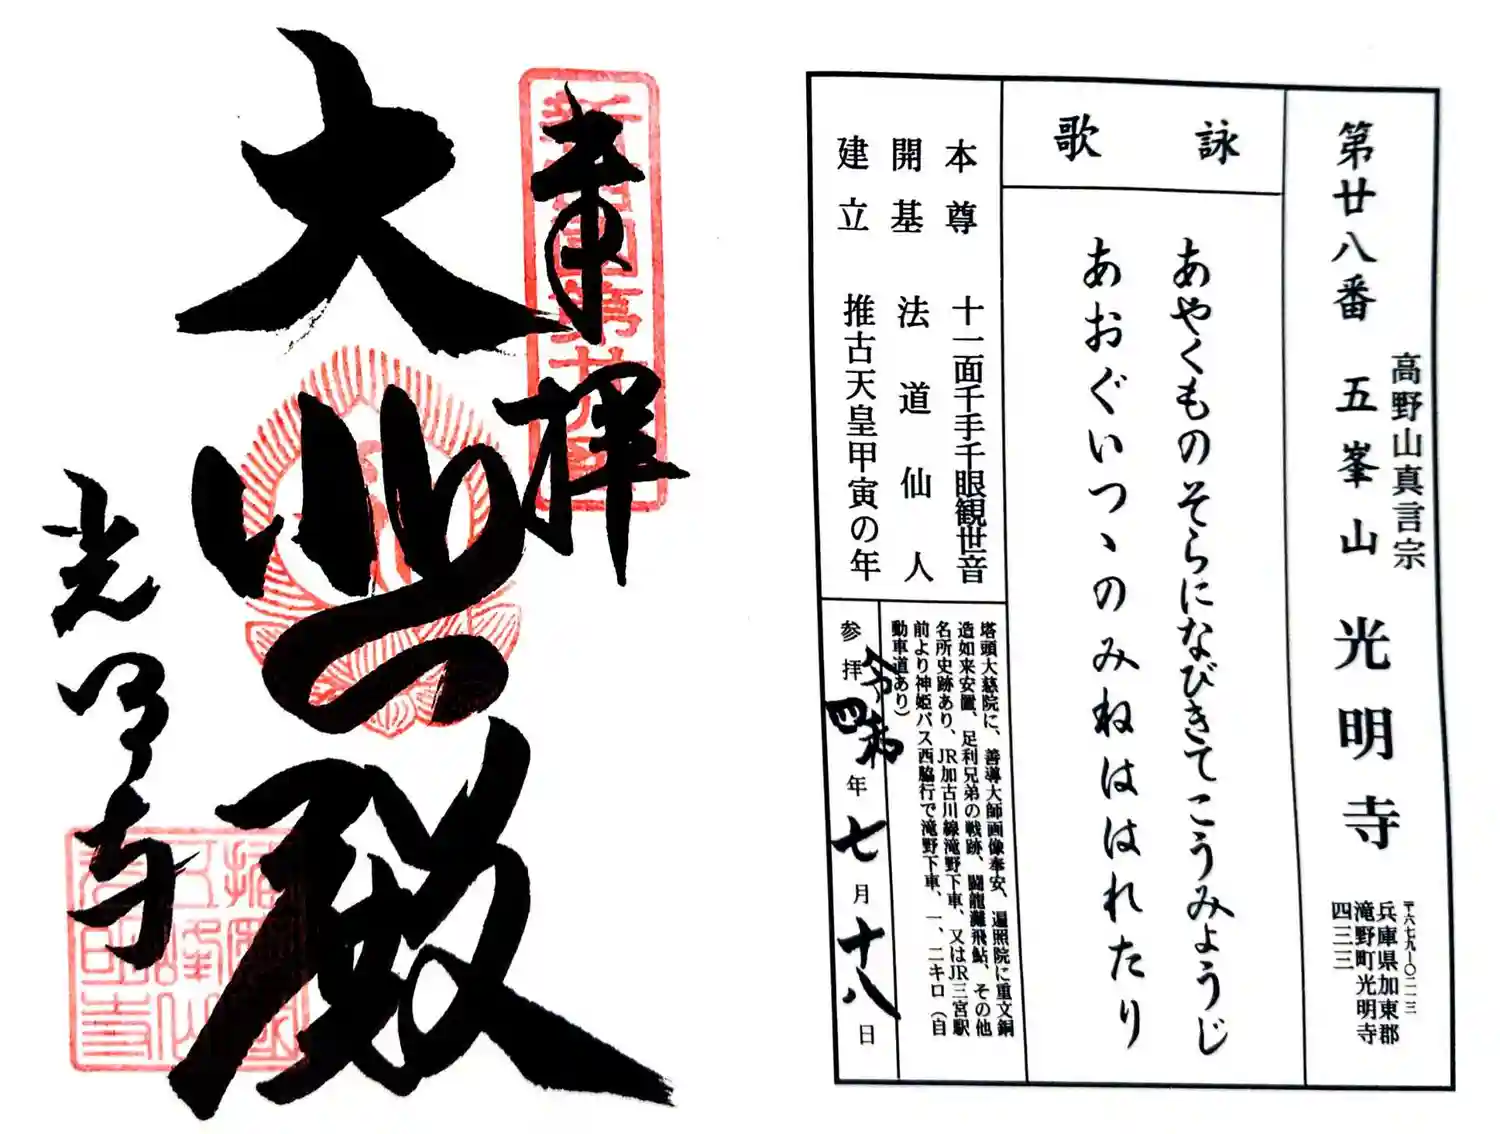 第廿八番 五峯山 光明寺
高野山真言宗
〒六七九-〇二一三
兵庫県加東郡
滝野町光明寺
四三三
詠歌
あやくものそらになびきてこうみようじ
あおぐいつゝのみねははれたり
本尊 十一面千手千眼観世音
開基 法道仙人
建立 推古天皇甲寅の年
塔頭大慈院に、善導大師画像奉安、遍照院に重文銅
造如来安置、足利兄弟の戦跡、闘龍灘飛鮎、その他
名所史跡あり、JR加古川線滝野下車、又はJR三宮駅
前より神姫バス西脇行で滝野下車、一、二キロ（自
動車道あり）
参拝 令和四年七月十八日
奉拝
大悲殿
光明寺